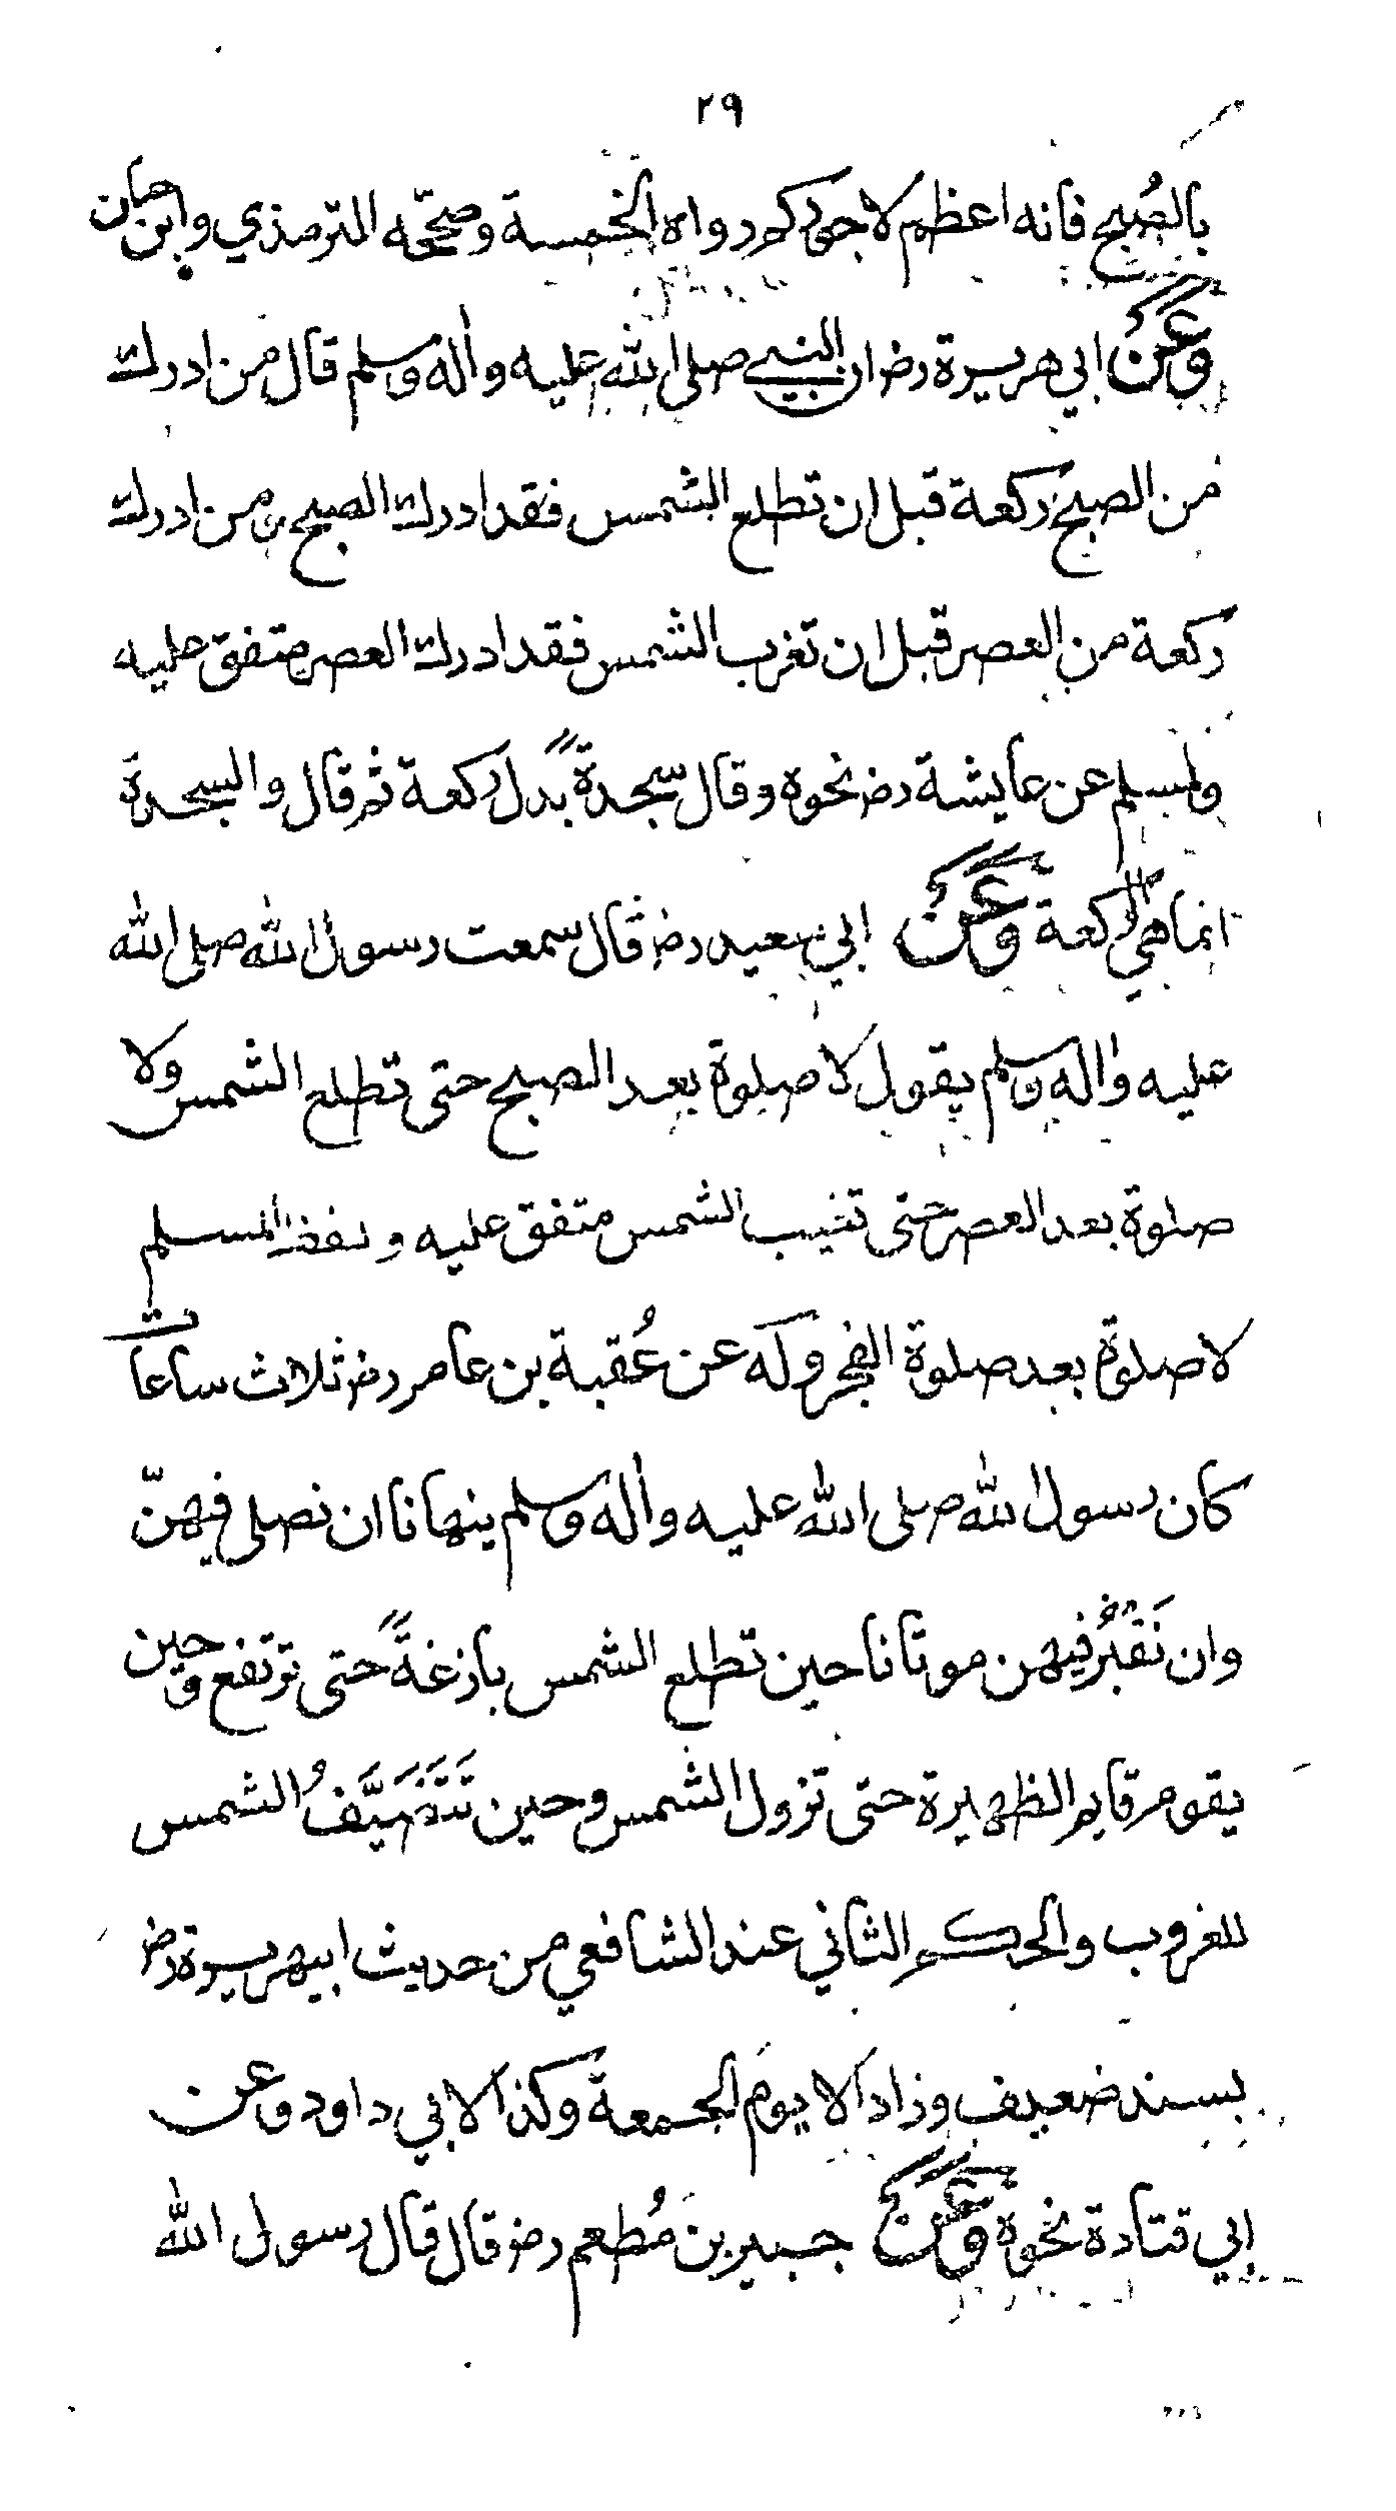 ٢٩
بالصُبح فانه اعظم لاجوركم رواه الخمسة وصحّحه الترمذي وابن حبان
وعَنْ ابي هريرة رض ان النبي صلى الله عليه واله وسلم قال من ادرك
من الصبح ركعة قبل ان تطلع الشمس فقد ادرك الصبح ومن ادرك
ركعة من العصر قبل ان تغرب الشمس فقد ادرك العصر متفق عليه
ولمسلم عن عايشة رض نحوه وقال سجدةً بدل ركعة ثم قال والسجدة
انما هي الركعة وعَنْ ابي سعيد رض قال سمعت رسول الله صلى الله
عليه واله وسلم يقول لا صلوة بعد الصبح حتى تطلع الشمس ولا
صلوة بعد العصر حتى تغيب الشمس متفق عليه ولفظ لمسلم
لا صلوة بعد صلوة الفجر وله عن عُقبة بن عامر رض ثلاث ساعات
كان رسول الله صلى الله عليه واله وسلم ينهانا ان نصلي فيهنّ
وان نَقْبُر فيهن موتانا حين تطلع الشمس بازغةً حتى ترتفع وحين
يقوم قايم الظهيرة حتى تزول الشمس وحين تَتَضَيَّفُ الشمس
للغروب والحكم الثاني عند الشافعي من حديث ابيهريرة رض
بسند ضعيف وزاد الا يوم الجمعة وكذا لابي داود وعن
ابي قتادة نحوه وعَنْ جبير بن مُطعم رض قال قال رسول الله